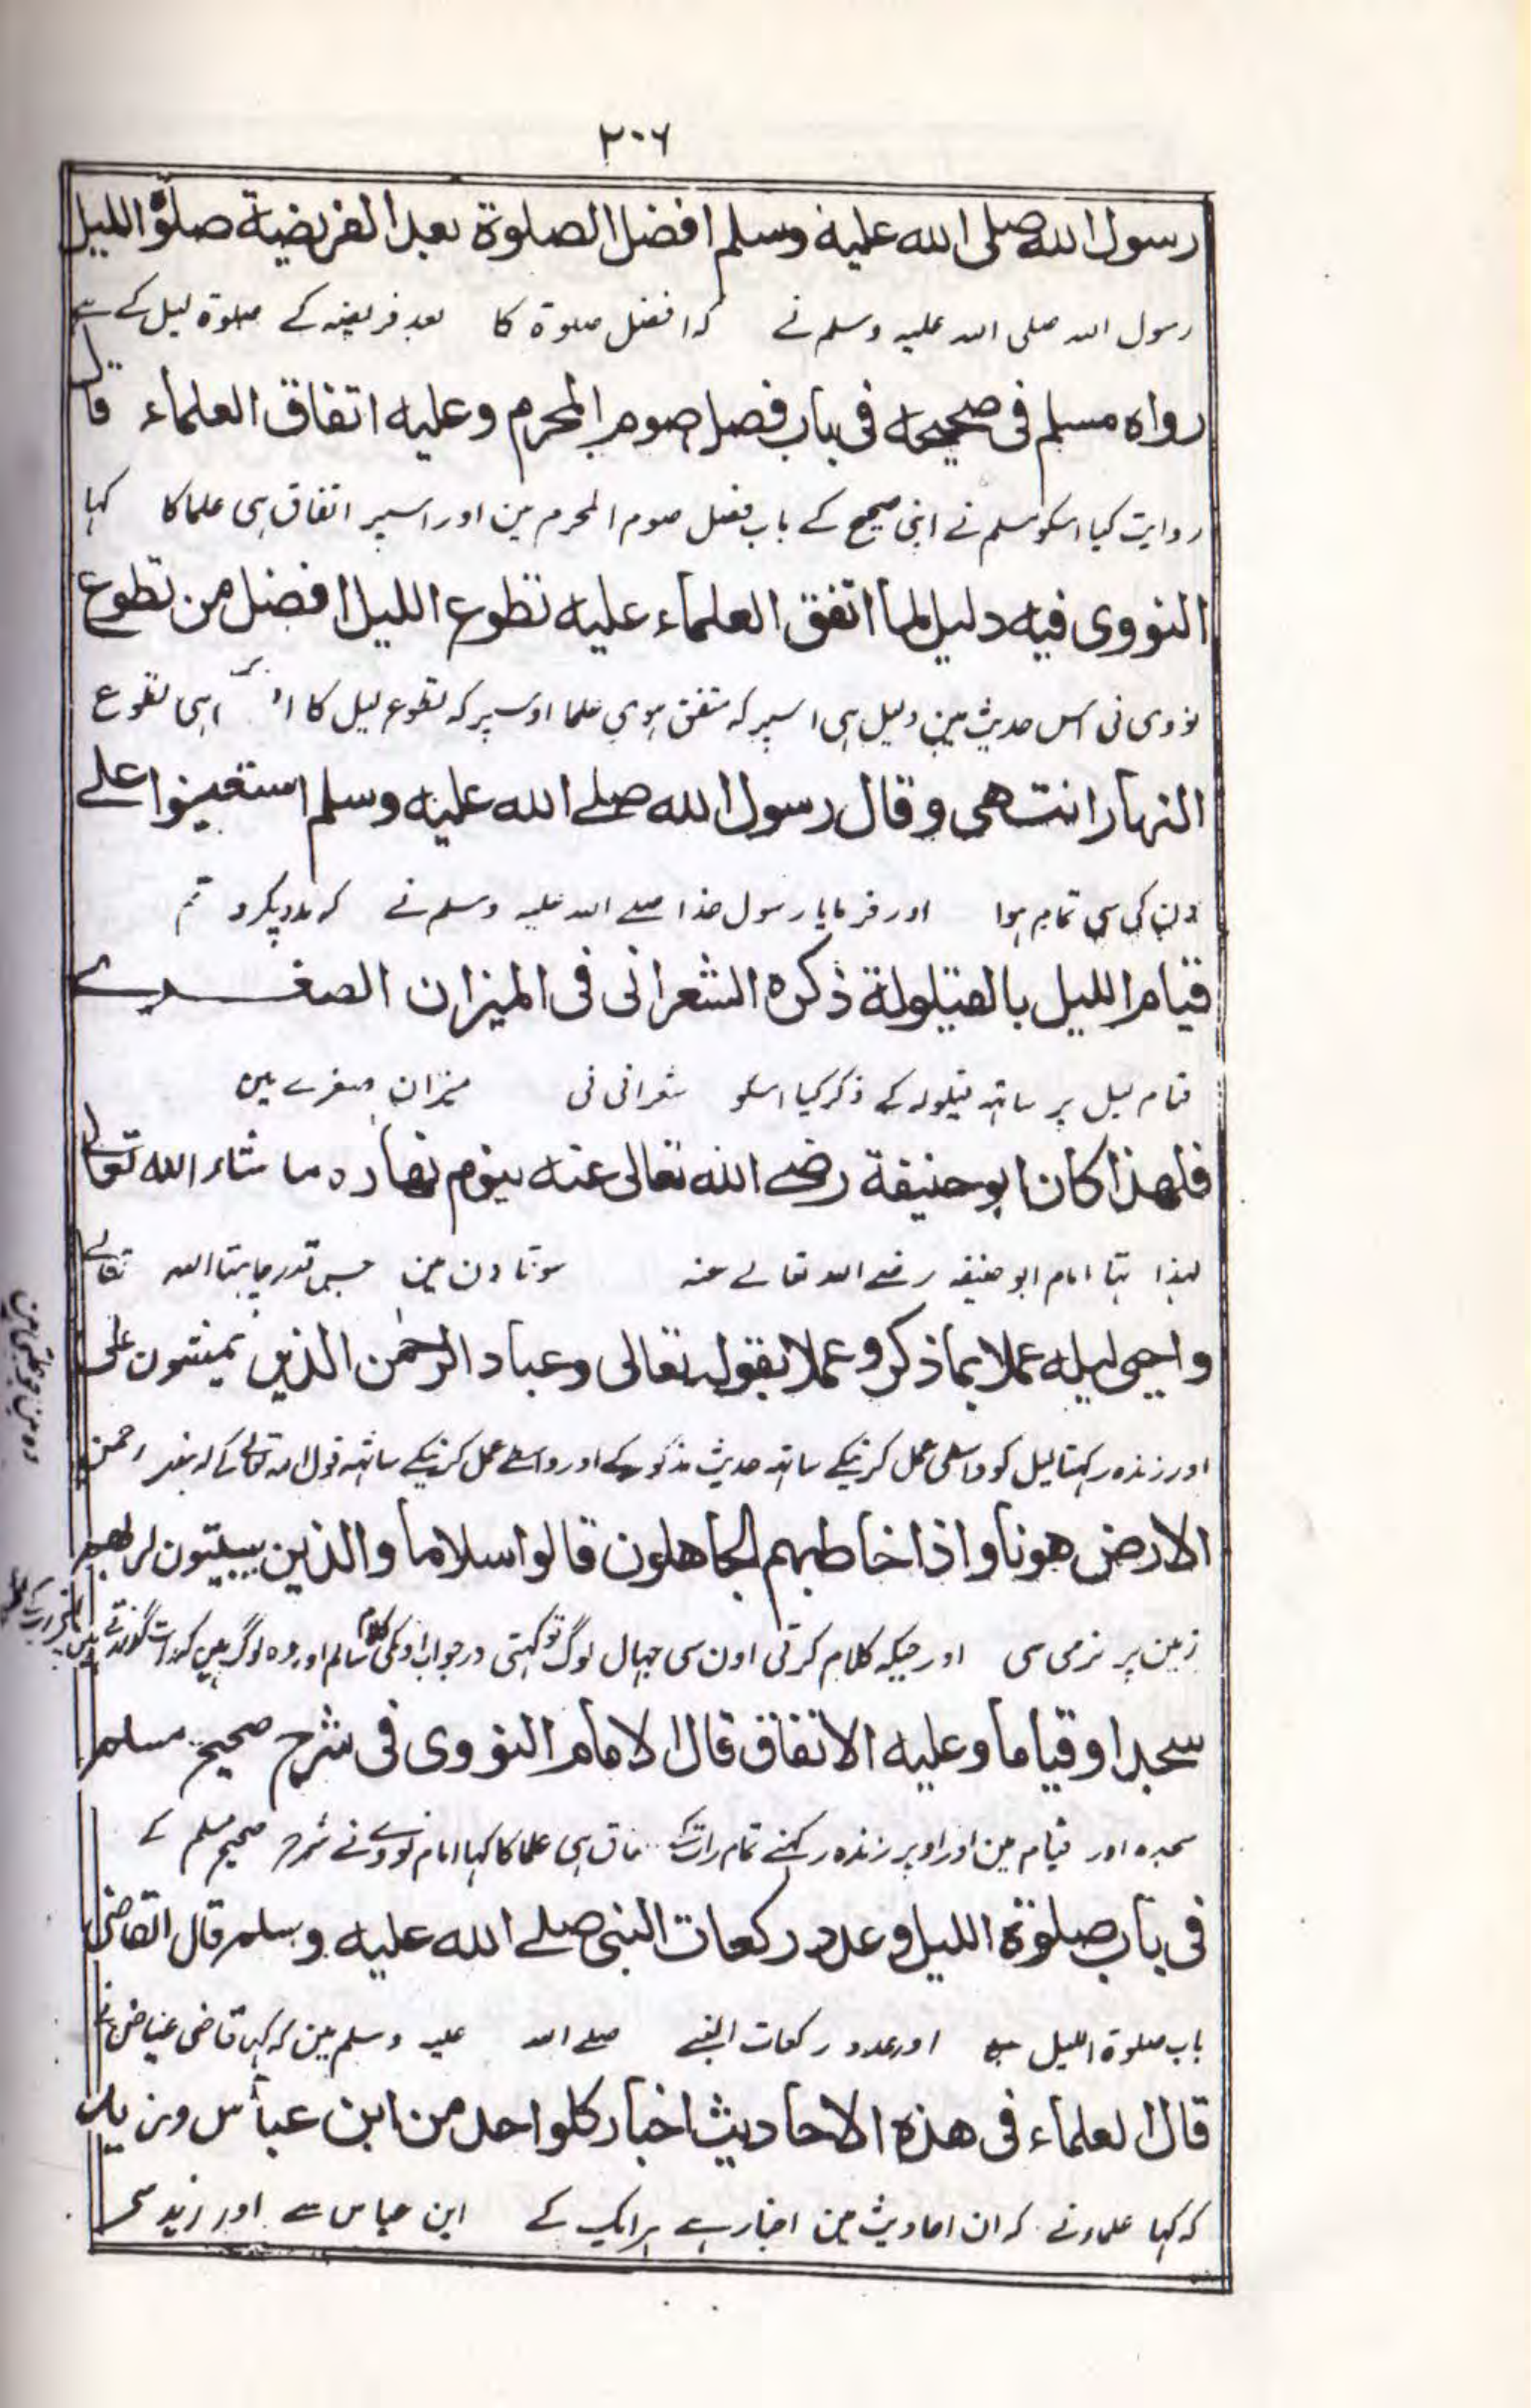 ۲۰۶
رسول الله صلى الله عليه وسلم افضل الصلوة بعد الفريضية صلوة الليل
رسول اللہ صلی اللہ علیہ وسلم نے کہ افضل صلوۃ کا بعد فریضہ کے صلوۃ لیل کے ہے
رواه مسلم فى صحيحه فى باب فضل صوم المحرم وعليه اتفاق العلماء قال
روایت کیا اسکو مسلم نے اپنی صحیح کے باب فضل صوم المحرم مین اور اسپر اتفاق ہی علما کا کہا
النووى فيه دليل لما اتفق العلماء عليه تطوع الليل افضل من تطوع
نووی نی اس حدیث مین دلیل ہی اسپر کہ متفق ہوی علما اوسپر کہ تطوع لیل کا ہی تطوع
النهار انتهى وقال رسول الله صلے الله عليه وسلم استعينوا علے
دن کی سی تمام ہوا اور فرمایا رسول خدا صلے اللہ علیہ وسلم نے کہ مدد پکڑو تم
قيام الليل بالقيلولة ذكره الشعرانى فى الميزان الصغرے
قیام لیل پر ساتہ قیلولہ کے ذکر کیا اسکو شعرانی نی میزان صغرے مین
فلهذا كان ابو حنيفة رضے الله تعالى عنه ينوم نهاره ما شاء الله تعالى
لہذا تہا امام ابو حنیفہ رضے اللہ تعالے عنہ سوتا دن مین جس قدر چاہتا اللہ تعالے
واحيى ليله عملا بما ذكر وعملا بقوله تعالى وعباد الرحمٰن الذين يمشون على
اور زندہ رکہتا لیل کو واسطی عمل کرنیکے ساتہ حدیث مذکور کے اور واسطے عمل کرنیکے ساتہہ قول اللہ تعالے کے کہ بندے رحمن
الارض هونا واذا خاطبهم الجاهلون قالوا سلاما والذين يبيتون لربهم
زمین پر نرمی سی اور جبکہ کلام کرتی اون سی جہال لوگ تو کہتی در جواب اونکی کلام سالم اور وہ لوگ ہین کہ رات گذرتے ہین
سجدا وقياما وعليه الاتفاق قال الامام النووى فى شرح صحيح مسلم
سجدہ اور قیام مین اور اوپر زندہ رکہنے تمام رات ہی علما کا کہا امام نووے نے شرح صحیح مسلم کے
فى باب صلوة الليل وعدد ركعات النبى صلے الله عليه وسلم قال القاضى
باب صلوۃ اللیل اور عدد رکعات النبے صلے اللہ علیہ وسلم مین کہ کہا قاضی عیاض نے
قال العلماء فى هذه الاحاديث اخبار كلواحد من ابن عباس وزيد
کہ کہا علماء نے کہ ان احادیث مین اخبار ہے ہر ایک کے ابن عباس سے اور زید سے